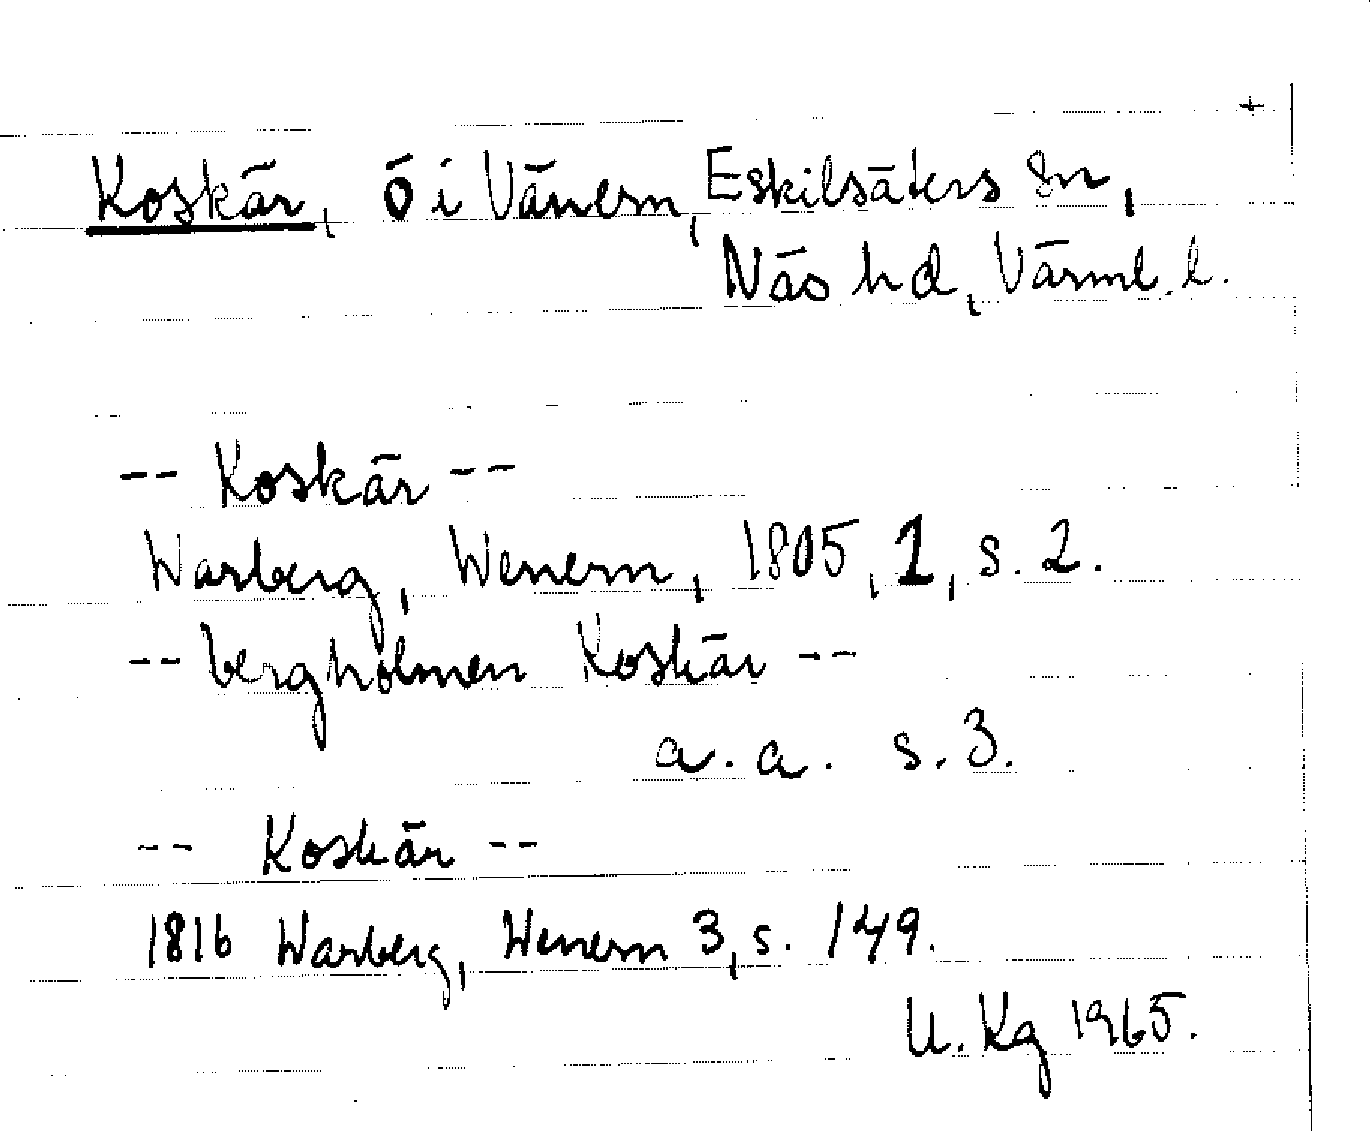 +
Koskär, ö i Vänern, Eskilsäters sn,
Näs hd, Värml. l.
-- Koskär --
Warberg, Wenern, 1805, 1, s. 2.
-- bergholmen Koskär --
a. a. s. 3.
-- Koskär --
1816 Warberg, Wenern 3, s. 149.
U. Kg 1965.